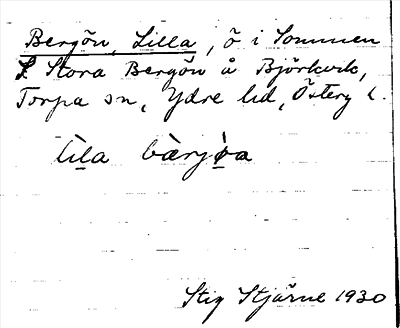 Bergön, Lilla, ö i Sommen
S Stora Bergön å Björkvik,
Torpa sn, Ydre hd, Österg l.
lìla bærjöa
Stig Stjärne 1930